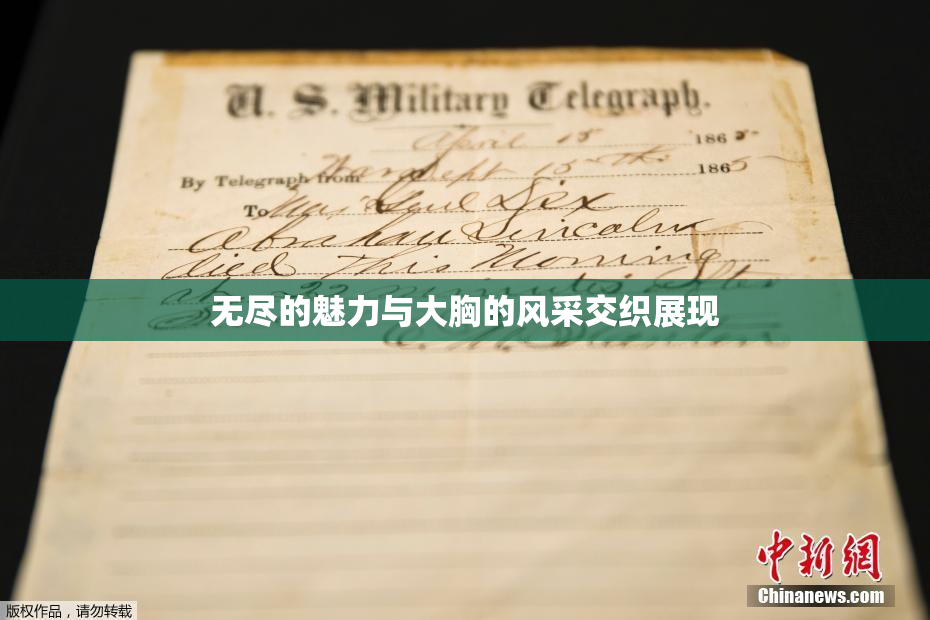 U. S. Military Telegraph.
April 15 1865
By Telegraph from War Dept 15th 1865
To Maj Genl Dix
Abraham Lincoln
died This Morning
at 22 minutes after
无尽的魅力与大胸的风采交织展现
E. M. Stanton
中新網
Chinanews.com
版权作品，请勿转载